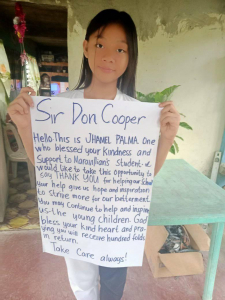 Sir Don Cooper
Hello. This is JHAMEL PALMA. One
who blessed your kindness and
support to Naravillan's student. I
would like to take this opportunity to
say THANK YOU for helping our School
Your help give us hope and inspiration
to strive more for our betterment.
You may continue to help and inspire
us-the young children. God
bless your kind heart and pra-
ying you will receive hundred folds
in return.
Take Care always!